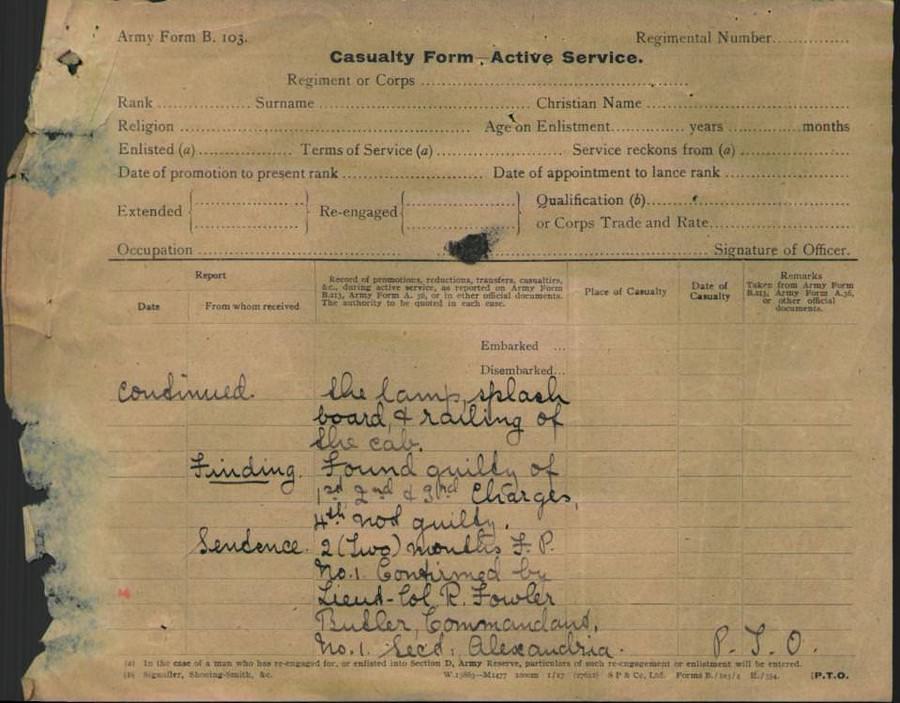 Army Form B. 103.
Regimental Number..............
Casualty Form—Active Service.
Regiment or Corps ..............
Rank .............. Surname .............. Christian Name ..............
Religion .............. Age on Enlistment.............. years .............. months
Enlisted (a).............. Terms of Service (a) .............. Service reckons from (a) ..............
Date of promotion to present rank .............. Date of appointment to lance rank ..............
Extended Re-engaged Qualification (b)..............
or Corps Trade and Rate..............
Occupation .............. Signature of Officer.
Report
Date
From whom received
Record of promotions, reductions, transfers, casualties,
&c., during active service, as reported on Army Form
B.213, Army Form A. 36, or in other official documents.
The authority to be quoted in each case.
Place of Casualty
Date of
Casualty
Remarks
Taken from Army Form
B.213, Army Form A.36,
or other official
documents.
Embarked ...
Disembarked...
continued. the lamp, splash
board, & railing of
the cab.
Finding. Found guilty of
1st 2nd & 3rd Charges,
4th not guilty.
Sentence. 2 (Two) months F. P.
No. 1. Confirmed by
Lieut-Col R. Fowler
Butler, Commandant,
No. 1. Alexandria.
P. T. O.
(a) In the case of a man who has re-engaged for, or enlisted into Section D, Army Reserve, particulars of such re-engagement or enlistment will be entered.
(b) Signaller, Shoeing-Smith, &c.
S P & Co., Ltd.
[P.T.O.